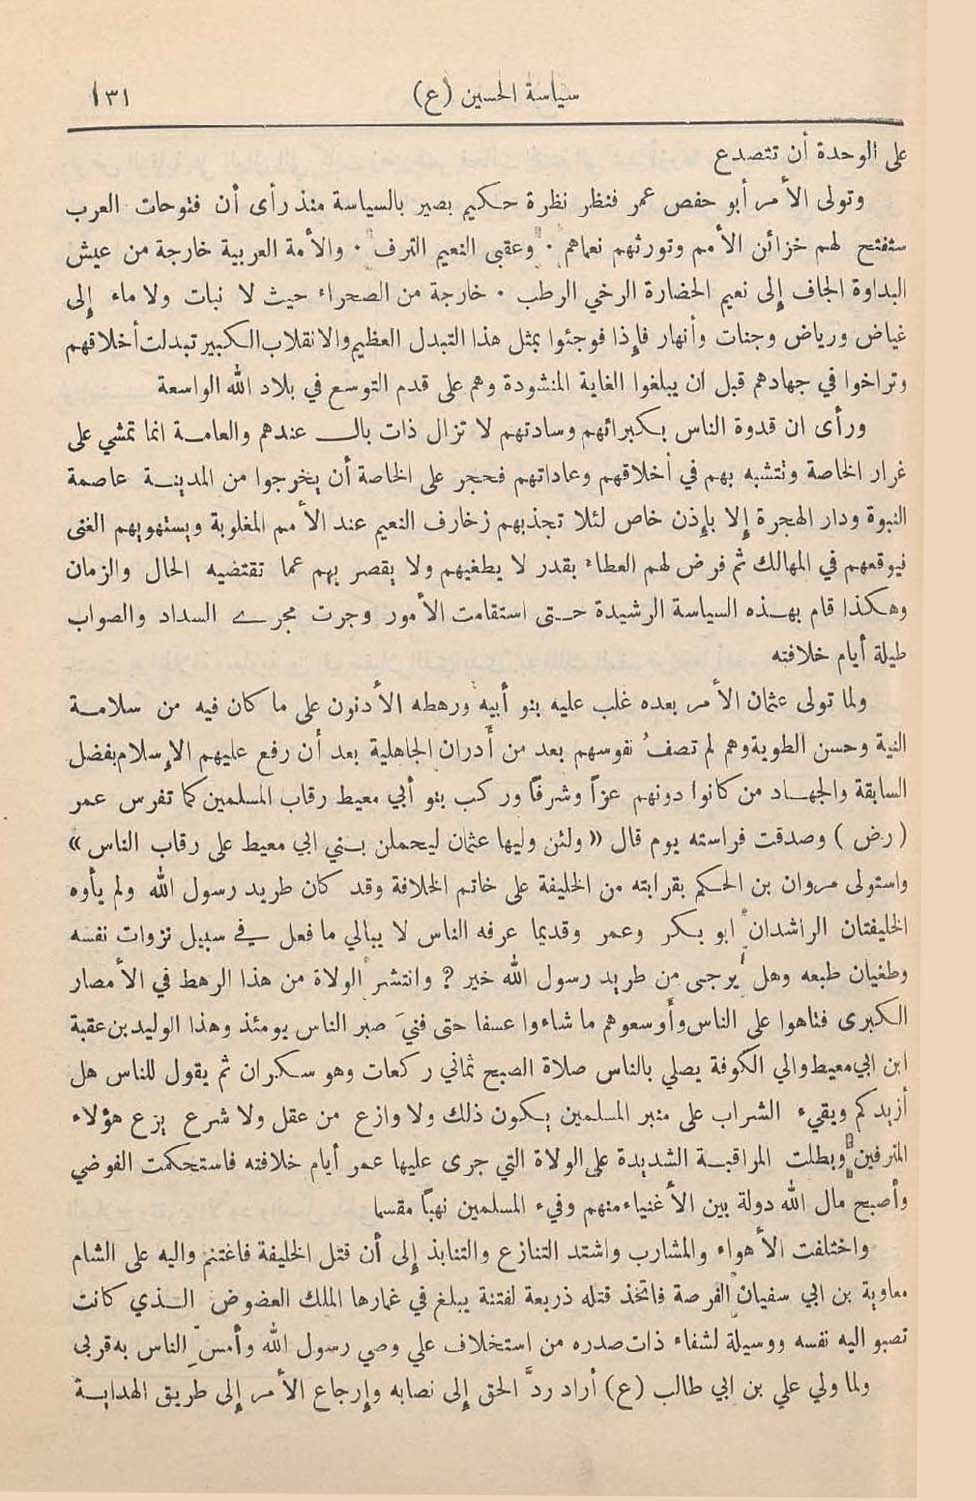 سياسة الحسين (ع) ١٣١
على الوحدة أن تتصدع
وتولى الأمر أبو حفص عمر فنظر نظرة حكيم بصير بالسياسة منذ رأى أن فتوحات العرب
ستفتح لهم خزائن الأمم وتورثهم نعماهم . وعقبى النعيم الترف . والأمة العربية خارجة من عيش
البداوة الجاف إلى نعيم الحضارة الرخي الرطب . خارجة من الصحراء حيث لا نبات ولا ماء إلى
غياض ورياض وجنات وأنهار فإذا فوجئوا بمثل هذا التبدل العظيم والانقلاب الكبير تبدلت أخلاقهم
وتراخوا في جهادهم قبل ان يبلغوا الغاية المنشودة وهم على قدم التوسع في بلاد الله الواسعة
ورأى ان قدوة الناس بكبرائهم وسادتهم لا تزال ذات بال عندهم والعامة انما تمشي على
غرار الخاصة وتتشبه بهم في أخلاقهم وعاداتهم فحجر على الخاصة أن يخرجوا من المدينة عاصمة
النبوة ودار الهجرة إلا بإذن خاص لئلا تجذبهم زخارف النعيم عند الأمم المغلوبة ويستهويهم الغنى
فيوقعهم في المهالك ثم فرض لهم العطاء بقدر لا يطغيهم ولا يقصر بهم عما تقتضيه الحال والزمان
وهكذا قام بهذه السياسة الرشيدة حتى استقامت الأمور وجرت مجرى السداد والصواب
طيلة أيام خلافته
ولما تولى عثمان الأمر بعده غلب عليه بنو أبيه ورهطه الأدنون على ما كان فيه من سلامة
النية وحسن الطوية وهم لم تصفُ نفوسهم بعد من أدران الجاهلية بعد أن رفع عليهم الإسلام بفضل
السابقة والجهاد من كانوا دونهم عزاً وشرفاً وركب بنو أبي معيط رقاب المسلمين كما تفرس عمر
(رض) وصدقت فراسته يوم قال « ولئن وليها عثمان ليحملن بني ابي معيط على رقاب الناس »
واستولى مروان بن الحكم بقرابته من الخليفة على خاتم الخلافة وقد كان طريد رسول الله ولم يأوه
الخليفتان الراشدان ابو بكر وعمر وقديما عرفه الناس لا يبالي ما فعل في سبيل نزوات نفسه
وطغيان طبعه وهل يرجى من طريد رسول الله خير ? وانتشر الولاة من هذا الرهط في الأمصار
الكبرى فتاهوا على الناس وأوسعوهم ما شاءوا عسفا حتى فنيَ صبر الناس يومئذ وهذا الوليد بن عقبة
ابن ابي معيط والي الكوفة يصلي بالناس صلاة الصبح ثماني ركعات وهو سكران ثم يقول للناس هل
أزيدكم ويقيء الشراب على منبر المسلمين يكون ذلك ولا وازع من عقل ولا شرع يزع هؤلاء
المترفين وبطلت المراقبة الشديدة على الولاة التي جرى عليها عمر أيام خلافته فاستحكمت الفوضي
وأصبح مال الله دولة بين الأغنياء منهم وفيء المسلمين نهباً مقسما
واختلفت الأهواء والمشارب واشتد التنازع والتنابذ إلى أن قتل الخليفة فاغتنم واليه على الشام
معاوية بن ابي سفيان الفرصة فاتخذ قتله ذريعة لفتنة يبلغ في غمارها الملك العضوض الذي كانت
تصبو اليه نفسه ووسيلة لشفاء ذات صدره من استخلاف علي وصي رسول الله وأمسّ الناس به قربى
ولما ولي علي بن ابي طالب (ع) أراد ردَّ الحق إلى نصابه وإرجاع الأمر إلى طريق الهداية